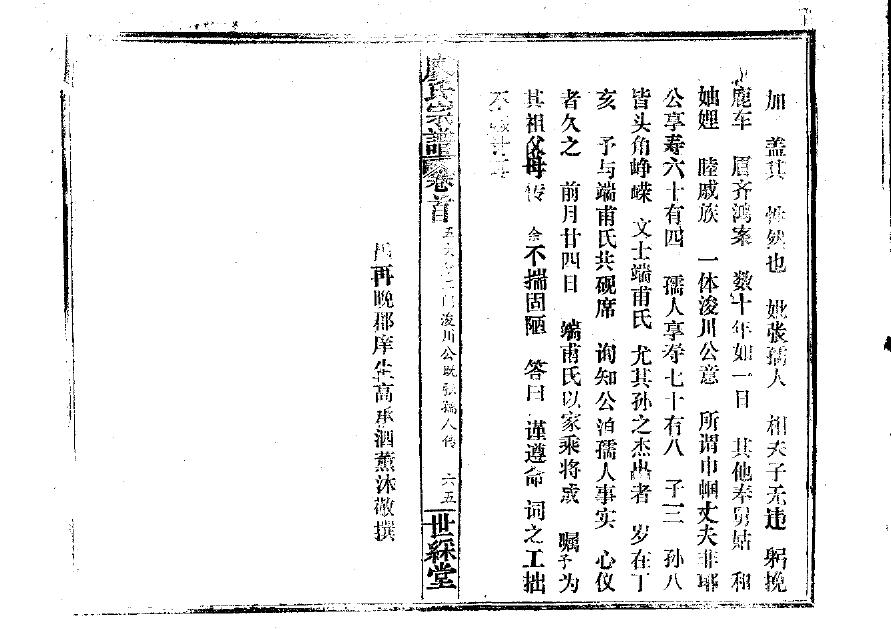 加 盖其 性然也 妣张孺人 相夫子无违 躬挽
鹿车 眉齐鸿案 数十年如一日 其他奉舅姑 和
妯娌 睦戚族 一体浚川公意 所谓巾帼丈夫非耶
公享寿六十有四 孺人享寿七十有八 子三 孙八
皆头角峥嵘 文士端甫氏 尤其孙之杰出者 岁在丁
亥 予与端甫氏共砚席 询知公洎孺人事实 心仪
者久之 前月廿四日 端甫氏以家乘将成 嘱予为
其祖父母传 余不揣固陋 答曰 谨遵命 词之工拙
不
再晚郡庠生高承泗薰沐敬撰
廖氏宗谱 卷首
浚川公既张孺人传 六五
世綵堂